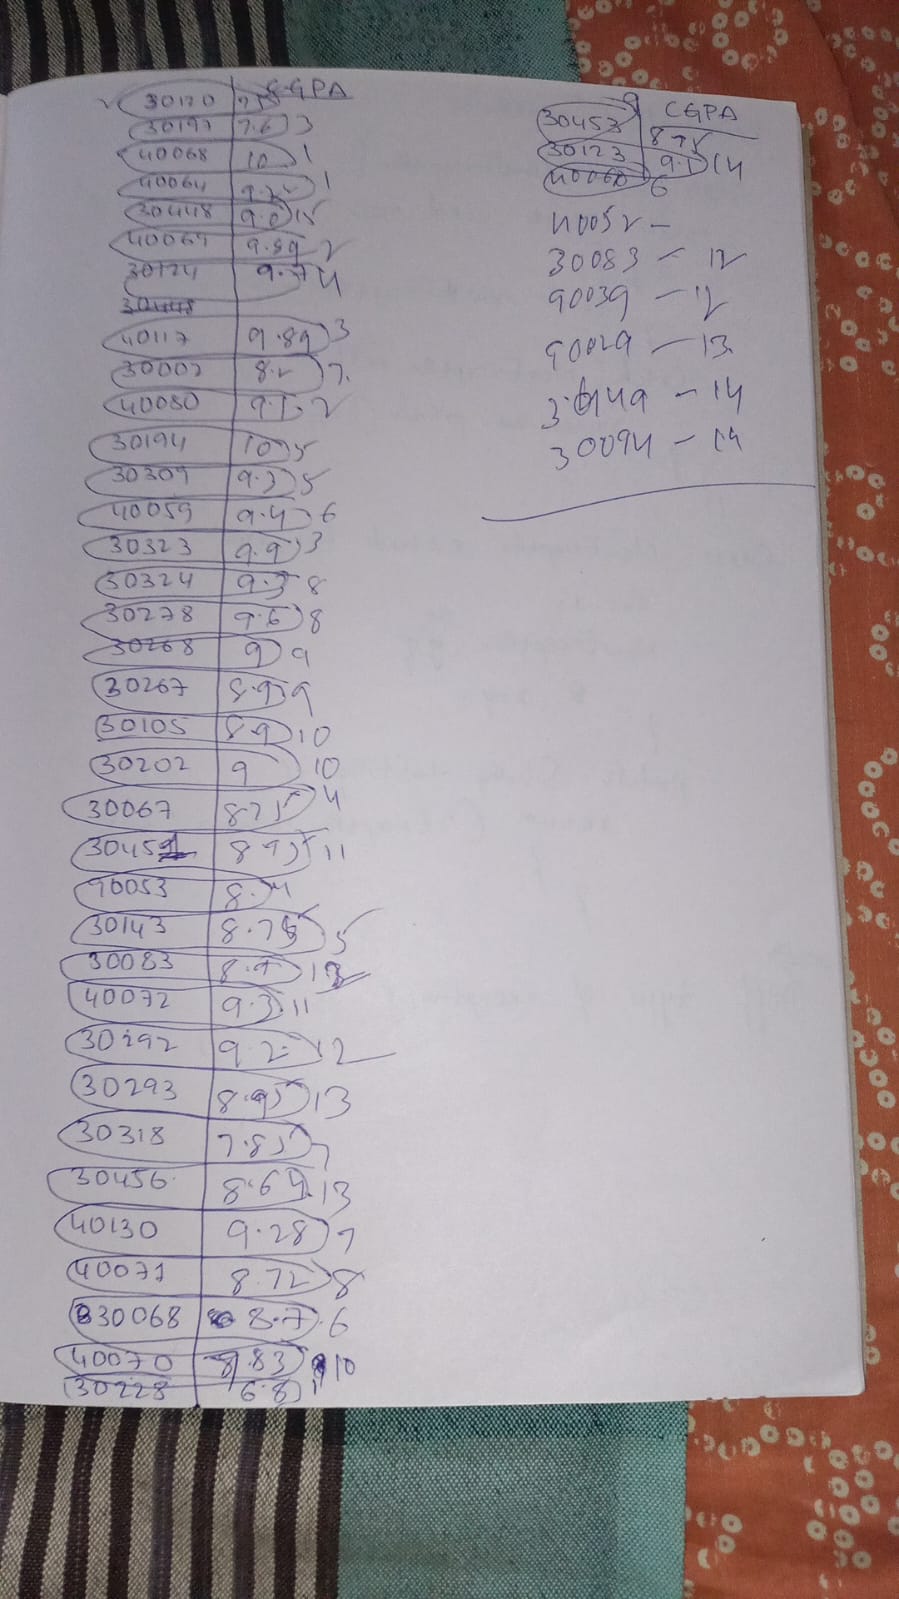 CGPA
30120
30197 7.6 3
40068 10 1
40064 1
30448 9.0 15
40069 9.89 2
30124 4
30448
40117 9.89 3
30007 8.2 7.
40080 2
30194 10 5
30309 9.3 5
40059 9.4 6
30323 9.9 3
30324 9.3 8
30278 9.6 8
30268 9 9
30267 8.9 9
30105 8.9 10
30202 9 10
30067 8.75 4
3045 8.95 11
90053 8.
30143 8.75 5
30083 8.7 12
40072 9.3 11
30292 9.2 12
30293 8.95 13
30318 7.85 7
30456 8.64 13
40130 9.28 7
40071 8.72 8
30068 8.7 6
40070 .83 10
30228 6.8
CGPA
30453 8.75
30123 9.1 14
6
40052 -
30083 - 12
90039 - 12
90029 - 13
149 - 14
30094 - 14